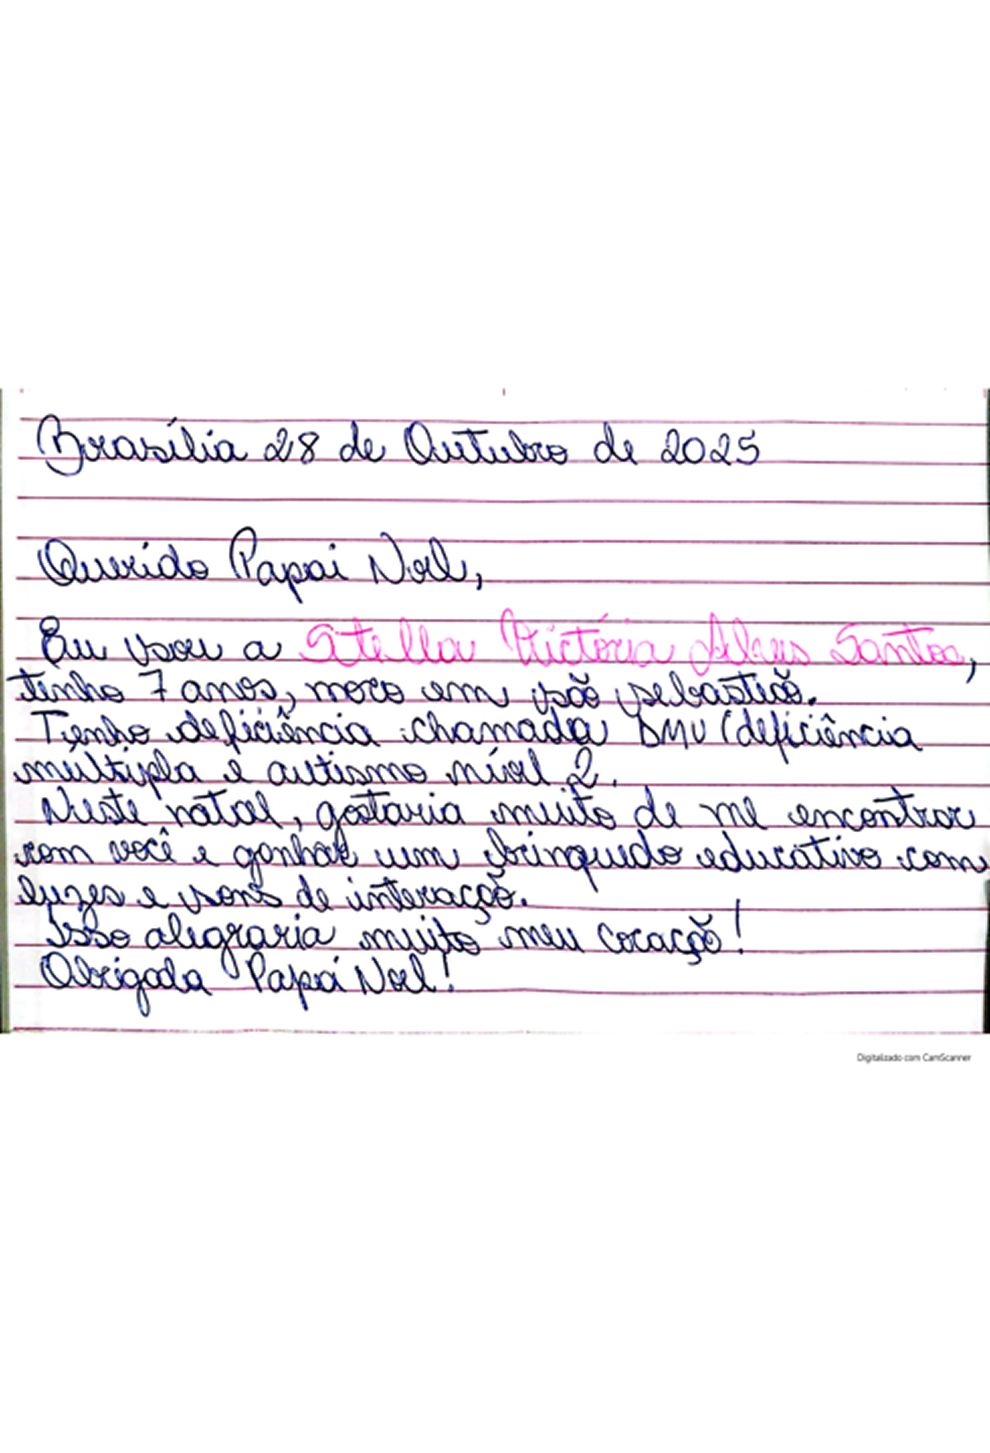 Brasília 28 de Outubro de 2025
Querido Papai Noel,
Eu sou a Stella Victória Alves Santos,
tenho 7 anos, moro em são sebastião.
Tenho deficiência chamada DMU (deficiência
multipla e autismo nível 2.
Neste natal, gostaria muito de me encontrar
com você e ganhar um brinquedo educativo com
luzes e sons de interação.
Isso alegraria muito meu coração!
Obrigada Papai Noel!
Digitalizado com CamScanner